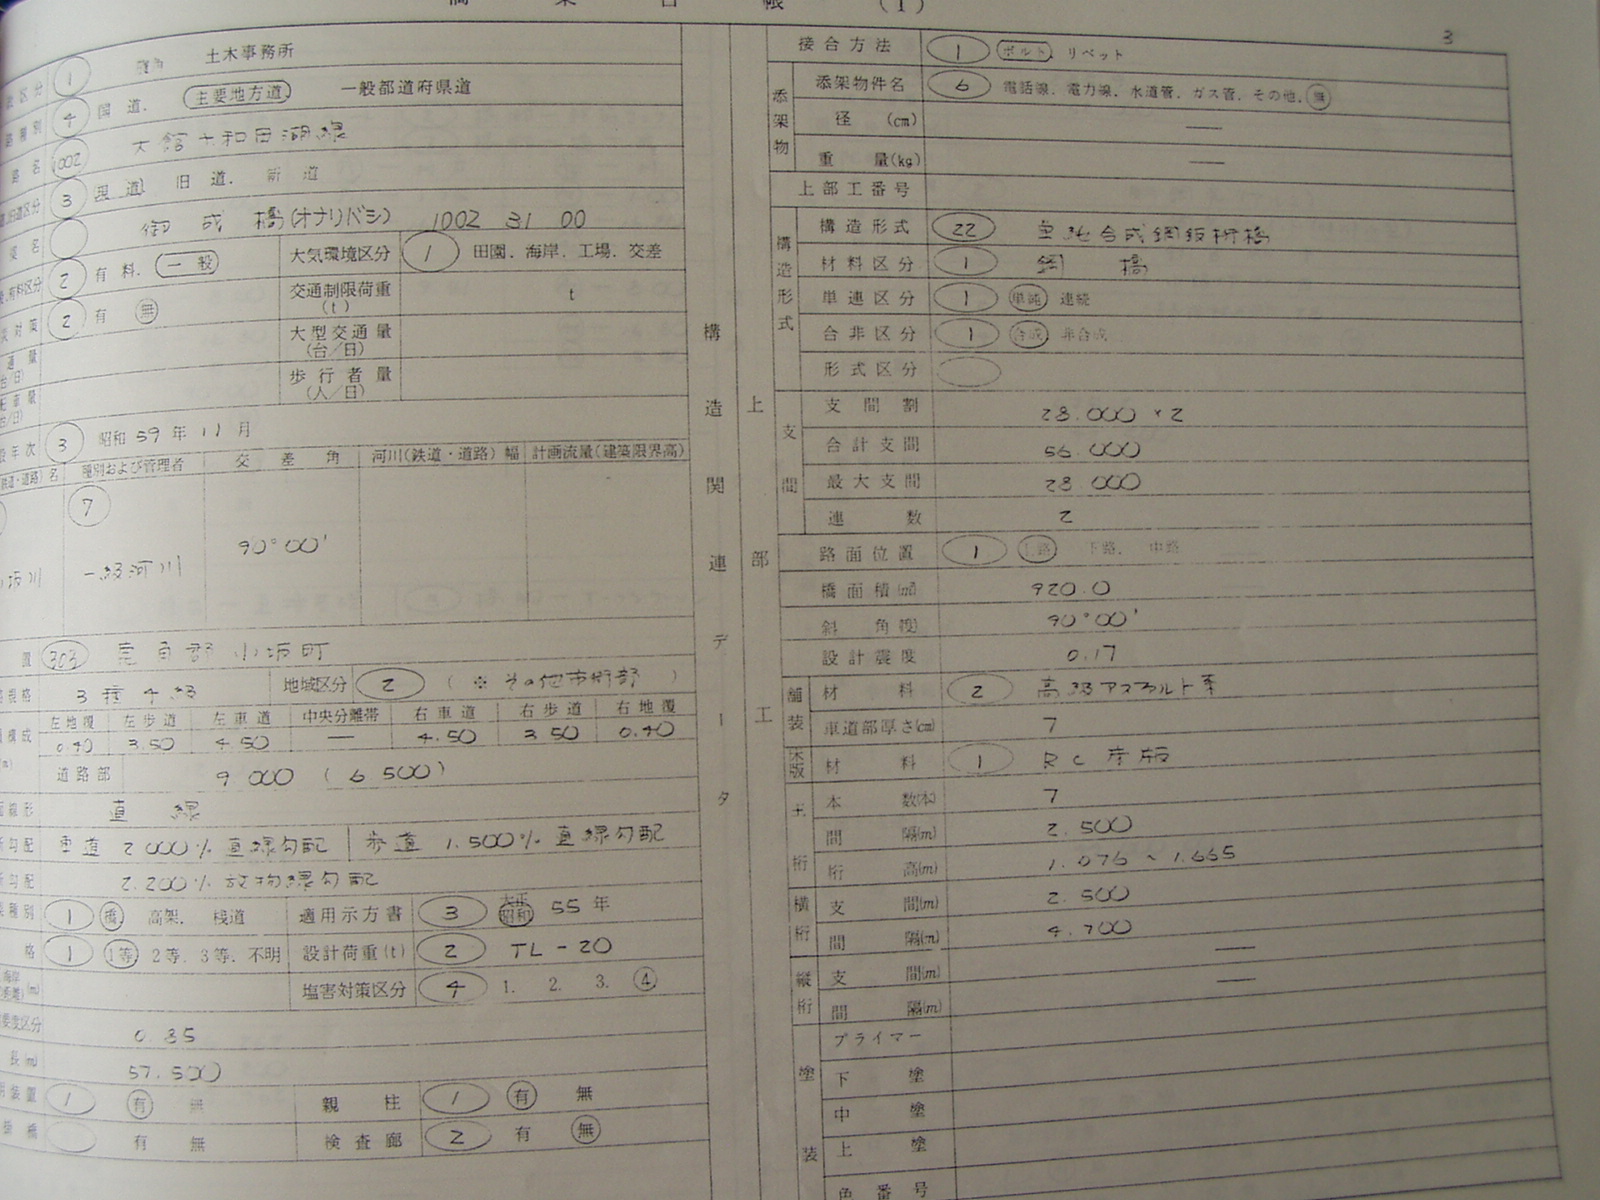 橋 梁 台 帳 (1)
3
区分 1 鹿角 土木事務所
種別 4 国道. 主要地方道 一般都道府県道
路名 1002 大館十和田湖線
旧道区分 3 現道 旧道. 新道
名 御成橋(オナリバシ) 1002 31 00
有料区分 2 有料. 一般 大気環境区分 1 田園. 海岸. 工場. 交差
対策 2 有 無 交通制限荷重(t) t
大型交通量(台/日)
歩行者量(人/日)
年次 3 昭和59年11月
(鉄道・道路)名 種別および管理者 交差角 河川(鉄道・道路)幅 計画流量(建築限界高)
7
小坂川 一級河川 90°00'
置 303 鹿角郡小坂町
規格 3種4級 地域区分 2 (※その他市街部)
構成(m) 左地覆 左歩道 左車道 中央分離帯 右車道 右歩道 右地覆
0.40 3.50 4.50 — 4.50 3.50 0.40
道路部 9.000 (6.500)
線形 直線
勾配 車道 2.000% 直線勾配 歩道 1.500% 直線勾配
勾配 2.200% 放物線勾配
種別 1 橋 高架. 桟道 適用示方書 3 大正 昭和 55年
格 1 1等 2等. 3等. 不明 設計荷重(t) 2 TL-20
海岸 (m) 塩害対策区分 4 1. 2. 3. 4
重要度区分 0.85
長(m) 57.500
装置 1 有 無 親柱 1 有 無
橋 有 無 検査廊 2 有 無
構造関連データ
上部工
接合方法 1 ボルト. リベット
添架物 添架物件名 6 電話線. 電力線. 水道管. ガス管. その他. 無
径 (cm) —
重量(kg) —
上部工番号
構造形式 構造形式 22 単純合成鋼鈑桁橋
材料区分 1 鋼橋
単連区分 1 単純 連続
合非区分 1 合成 非合成
形式区分
支間 支間割 28.000×2
合計支間 56.000
最大支間 28.000
連数 2
路面位置 1 上路 下路. 中路
橋面積(㎡) 920.0
斜角(度) 90°00'
設計震度 0.17
舗装 材料 2 高級アスファルト系
車道部厚さ(cm) 7
床版 材料 1 RC床版
主桁 本数(本) 7
間隔(m) 2.500
桁高(m) 1.076~1.665
横桁 支間(m) 2.500
間隔(m) 4.700
縦桁 支間(m) —
間隔(m) —
塗装 プライマー
下塗
中塗
上塗
色番号